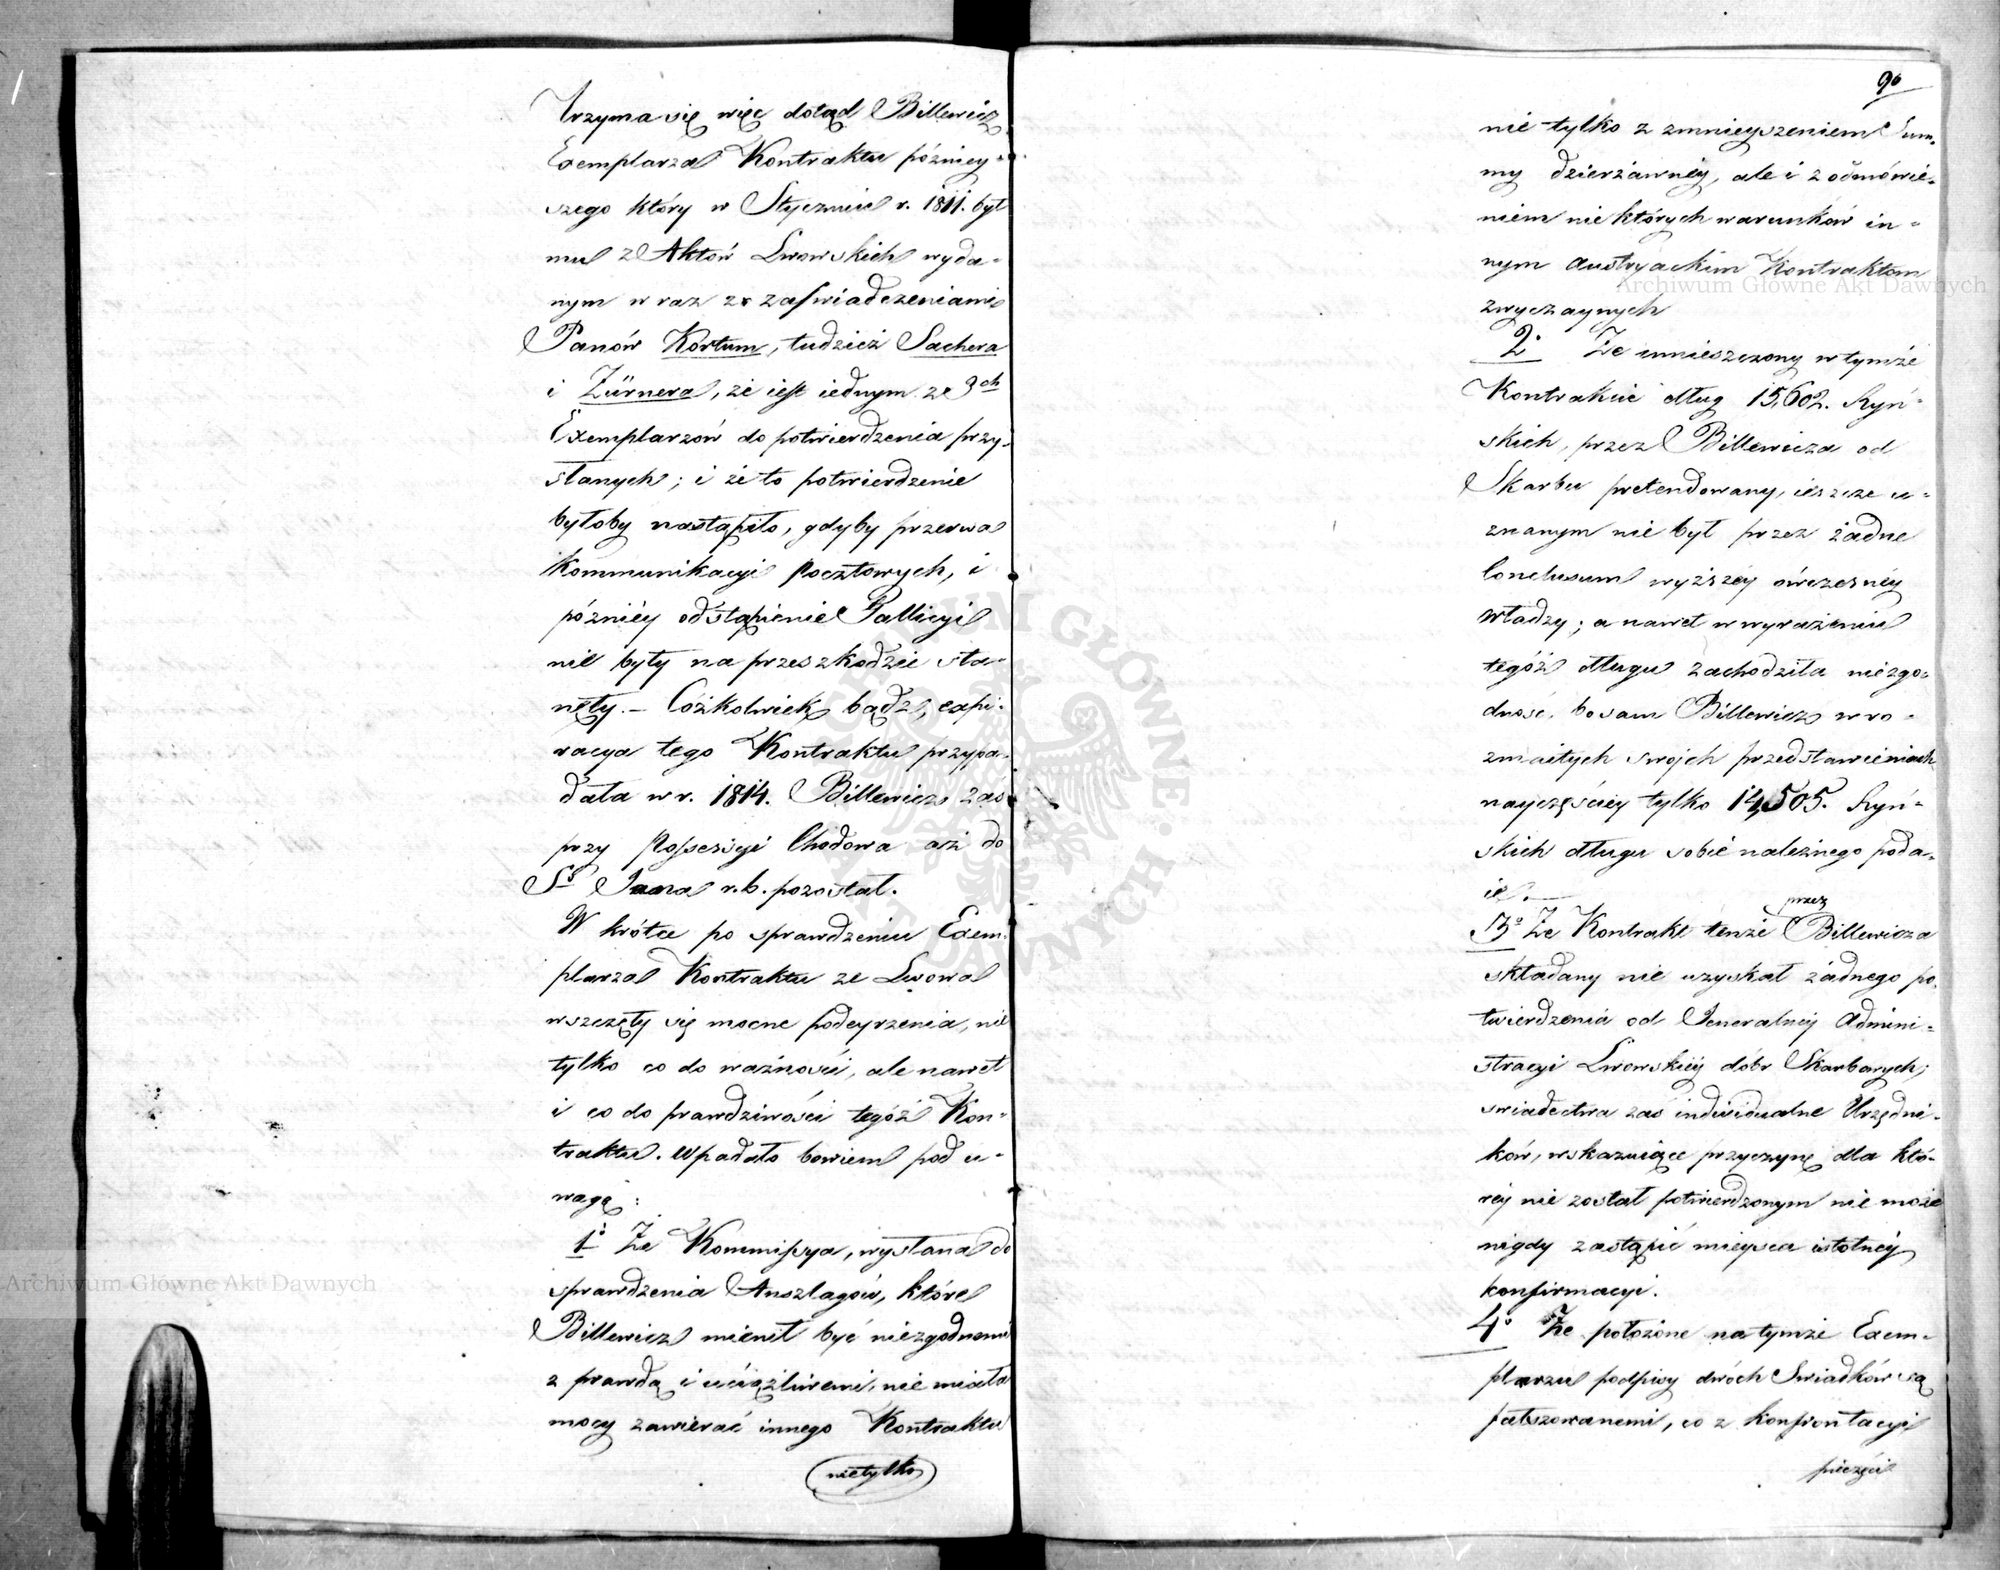 Trzyma się więc dotąd Billewicz
Exemplarza Kontraktu późniey-
szego który w Styczniu r. 1811. był
mu z Aktów Lwowskich wyda-
nym wraz ze zaświadczeniami
Panów Kortum, tudzież Sachera
i Zürnera, że iest iednym ze 3ch
Exemplarzów do potwierdzenia przy-
słanych; i że to potwierdzenie
byłoby nastąpiło, gdyby przerwa
Kommunikacyi Pocztowych, i
późniéy odstąpienie Gallicyi
nie były na przeszkodzie sta-
nęły. – Cóżkolwiek bądź, expi-
racya tego Kontraktu przypa-
dała w r. 1814. Billewicz zaś
przy Possessyi Chodowa aż do
So Jana r. b. pozostał.
W krótce po sprawdzeniu Exem-
plarza Kontraktu ze Lwowa
wszczęły się mocne podeyrzenia, nie
tylko co do ważności, ale nawet
i co do prawdziwości tegóż Kon-
traktu. Wpadało bowiem pod u-
wagę:
1o Że Kommissya, wysłana do
sprawdzenia Anszlagów, które
Billewicz mienił być niezgodnemi
z prawdą i uciążliwemi, nie miała
mocy zawierać innego Kontraktu
nietylko
90
nie tylko z zmnieyszeniem Sum-
my dzierżawnéy, ale i z odmówie-
niem niektórych warunków in-
nym austryackim Kontraktom
zwyczaynych
2o Że umieszczony w tymże
Kontrakcie dług 15,602. Ryń-
skich, przez Billewicza od
Skarbu pretendowany, ieszcze u-
znanym nie był przez żadne
Conclusum wyższéy ówczesnéy
władzy; a nawet w wyrażeniu
tegóż długu zachodziła niezgo-
dność, bo sam Billewicz w ro-
zmaitych swojch przedstawieniach
nayczęściey tylko 14,505. Ryń-
skich długu sobie należnego poda-
ie. —
przez
3o Że Kontrakt tenże Billewicza
składany nie uzyskał żadnego po-
twierdzenia od Jeneralnéj Admini-
stracyi Lwowskiéj dóbr Skarbowych;
swiadectwa zaś indiwidualne Urzędni-
ków, wskazuiące przyczynę dla któ-
réj nie został potwierdzonym nie może
nigdy zastąpić mieysca istotnéj
konfirmacyi.
4o Że położone na tymże Exem-
plarzu podpisy dwóch Swiadków są
fałszowanemi, co z konfrontacyi
pieczęci
Archiwum Główne Akt Dawnych
Archiwum Główne Akt Dawnych
ARCHIWUM GŁÓWNE AKT DAWNYCH